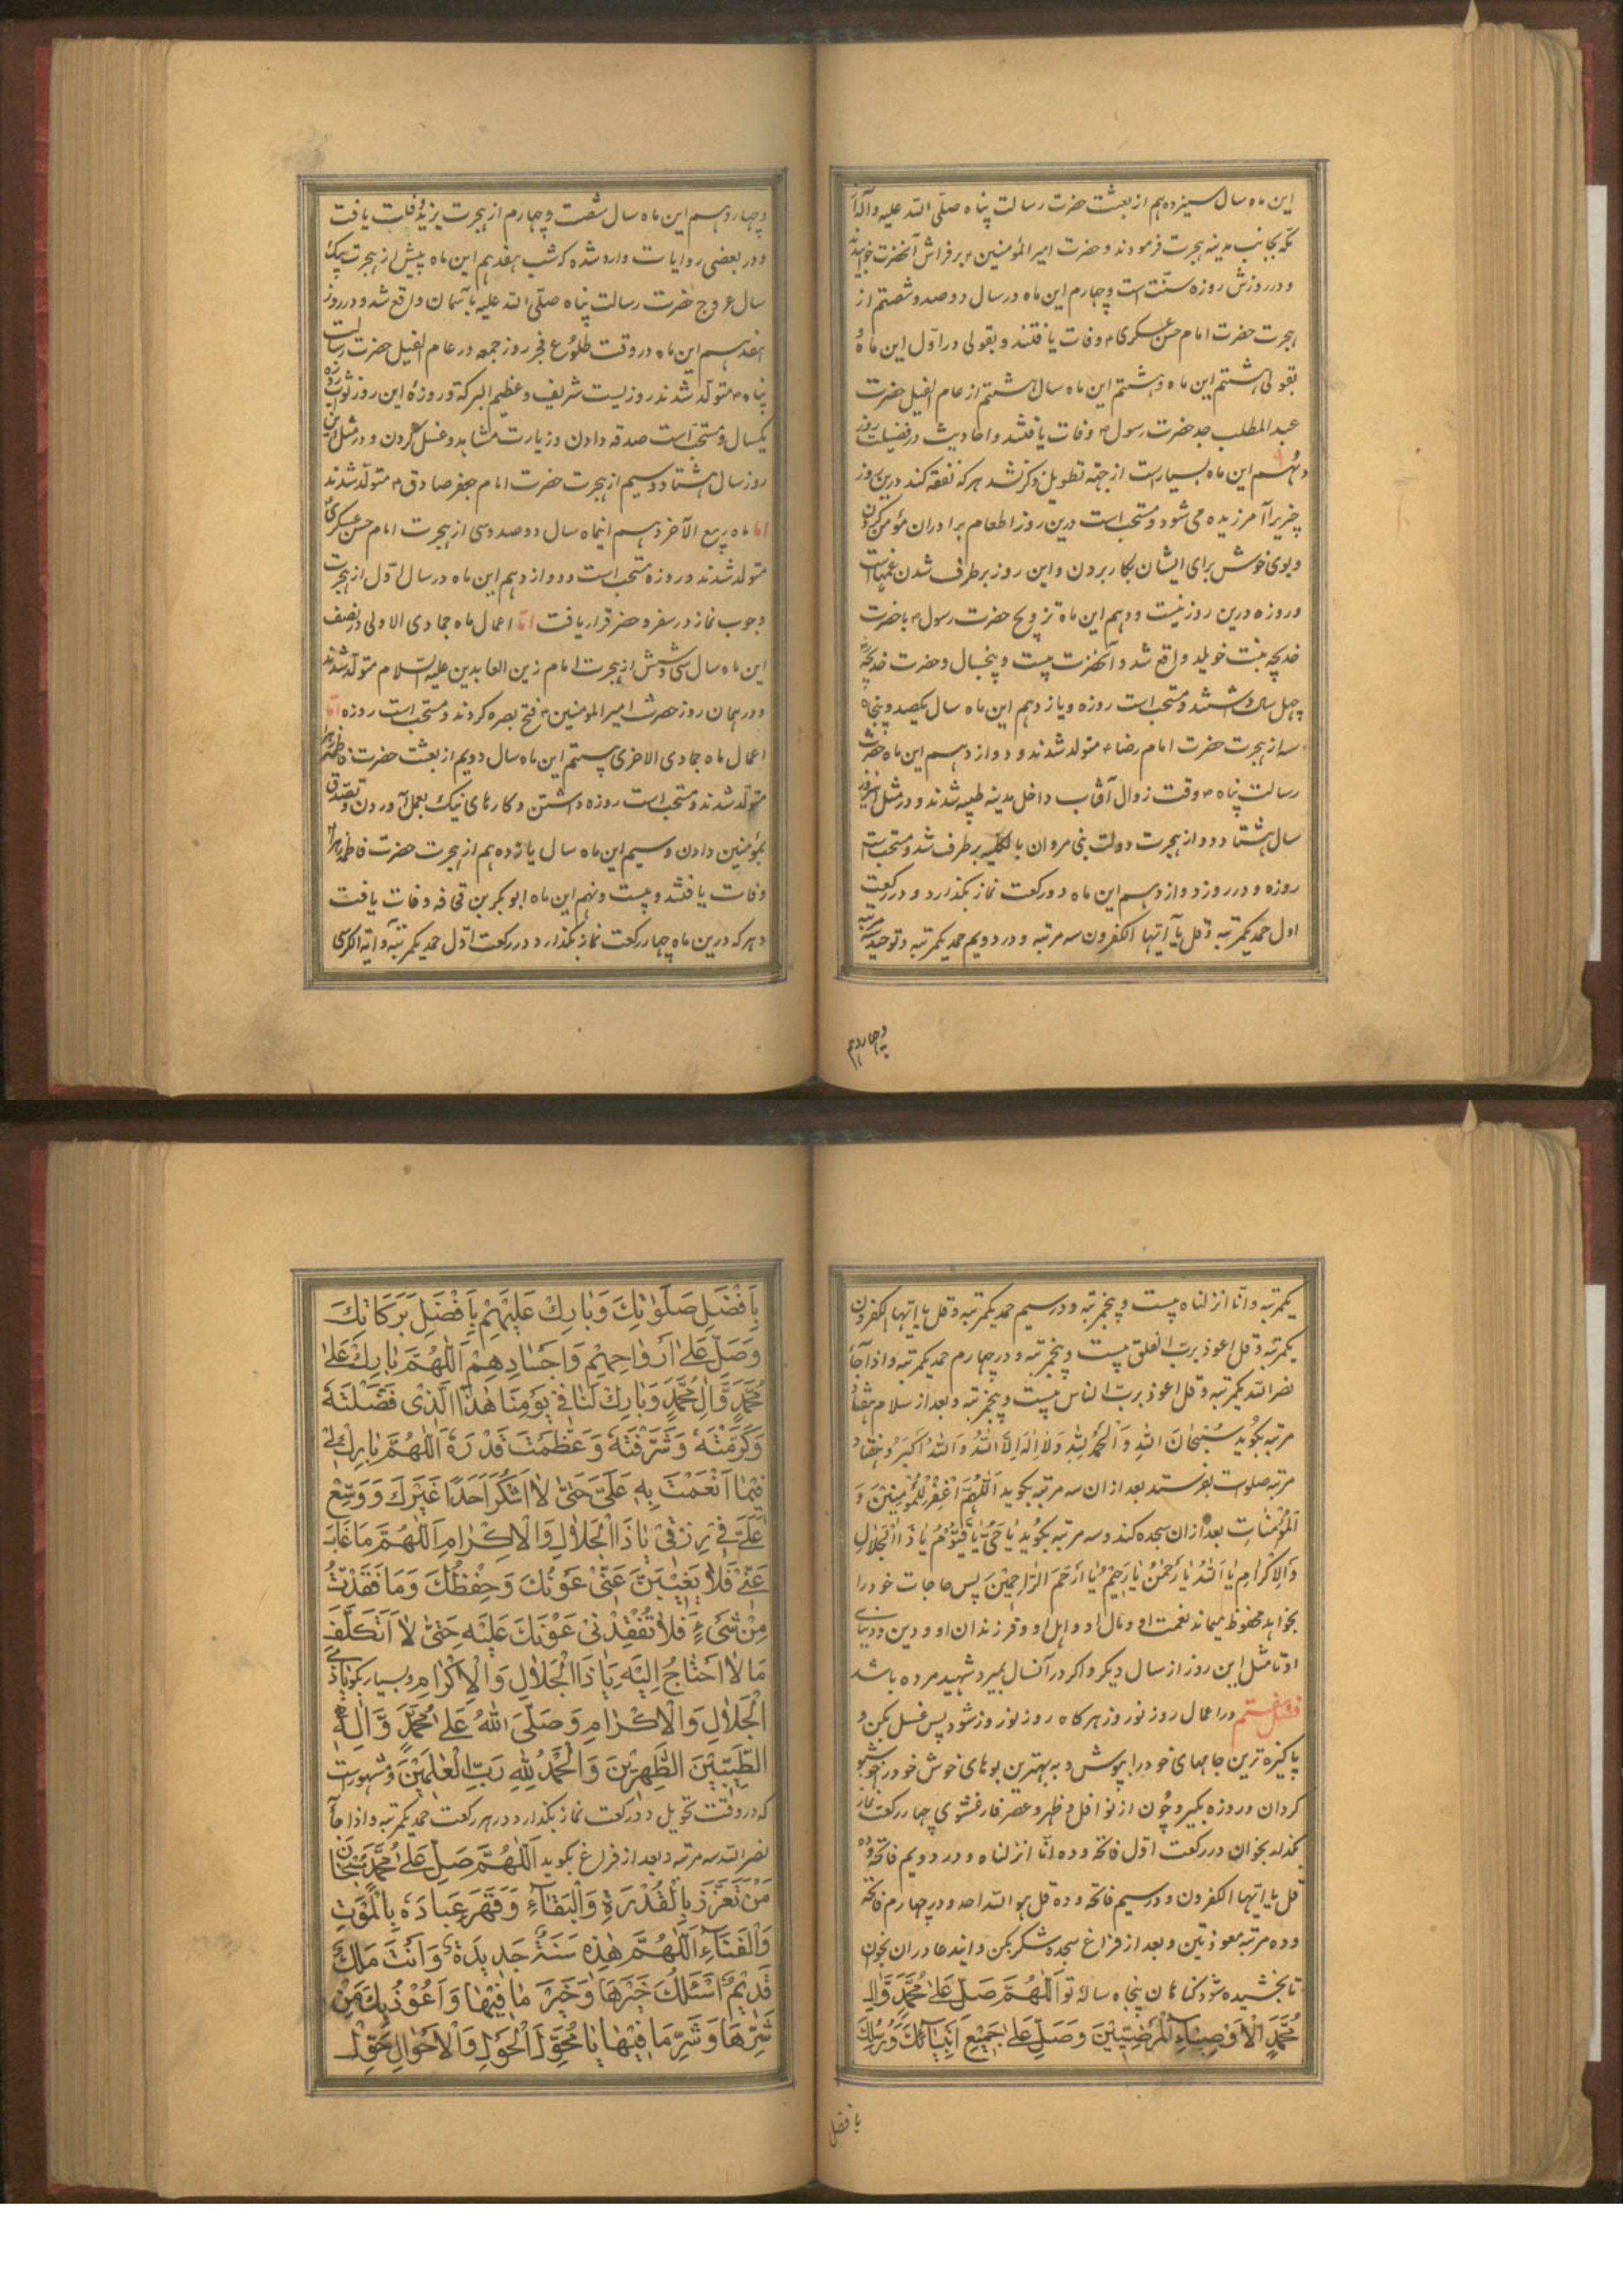 این ماه سال سیزدهم از بعثت حضرت رسالت پناه صلّی الله علیه وآله از
مکه بجانب مدینه هجرت فرمودند و حضرت امیر المؤمنین ۴ بر فراش آنحضرت خوابیدند
و در روزش روزه سنّت است و چهارم این ماه در سال دو صد و شصتم از
هجرت حضرت امام حسن عسکری ۴ وفات یافتند و بقولی در اوّل این ماه و
بقولی هشتم این ماه و هشتم این ماه سال هشتم از عام الفیل حضرت
عبد المطلب جد حضرت رسول ۴ وفات یافتند و احادیث در فضیلت روز
و نهم این ماه بسیار است از جهة تطویل ذکر نشد هر که نفقه کند درین روز
چیزیرا آمرزیده می شود و مستحب است درین روز اطعام برادران مؤمن کردن
و بوی خوش برای ایشان بکار بردن و این روز بر طرف شدن غمهاست
و روزه درین روز نیست و دهم این ماه تزویج حضرت رسول ۴ با حضرت
خدیجه بنت خویلد واقع شد و آنحضرت بیست و پنجسال و حضرت خدیجه
چهل سال داشتند و مستحب است روزه و یازدهم این ماه سال یکصد و پنجاه
سه از هجرت حضرت امام رضا ۴ متولد شدند و دوازدهم این ماه حضرت
رسالت پناه ۴ وقت زوال آفتاب داخل مدینه طیبه شدند و در مثل این روز
سال هشتاد و دو از هجرت دولت بنی مروان بالکلیه بر طرف شد و مستحب است
روزه و در روز دوازدهم این ماه دو رکعت نماز بگذارد و در رکعت
اول حمد یکمرتبه و قل یا ایها الکفرون سه مرتبه و در دویم حمد یکمرتبه و توحید سه مرتبه
و چهاردهم
و چهاردهم این ماه سال شصت و چهارم از هجرت یزید وفات یافت
و در بعضی روایات وارد شده که شب هفدهم این ماه پیش از هجرت بیک
سال عروج حضرت رسالت پناه صلّی الله علیه بآسمان واقع شد و در روز
هفدهم این ماه در وقت طلوع فجر روز جمعه در عام الفیل حضرت رسالت
پناه ۴ متولّد شدند روزیست شریف و عظیم البرکة و روزهٔ این روز ثواب روزه
یکسال و مستحب است صدقه دادن و زیارت مشاهد و غسل کردن و در مثل این
روز سال هشتاد و سیم از هجرت حضرت امام جعفر صادق ۴ متولّد شدند
اما ماه ربیع الآخر دهم اینماه سال دو صد و سی از هجرت امام حسن عسکری
متولد شدند و روزه مستحب است و دوازدهم این ماه در سال اوّل از هجرت
وجوب نماز در سفر و حضر قرار یافت امّا اعمال ماه جمادی الاولی در نصف
این ماه سال سی و شش از هجرت امام زین العابدین علیه السّلام متولّد شدند
و در همان روز حضرت امیر المؤمنین ۴ فتح بصره کردند و مستحب است روزه امّا
اعمال ماه جمادی الاخری بیستم این ماه سال دویم از بعثت حضرت فاطمه زهرا
متولّد شدند و مستحب است روزه داشتن و کارهای نیک بعمل آوردن و تصدّق
بمؤمنین دادن و سیم این ماه سال یازدهم از هجرت حضرت فاطمه زهرا
وفات یافتند و بیست و نهم این ماه ابو بکر بن قحافه وفات یافت
و هر که درین ماه چهار رکعت نماز بگذارد در رکعت اوّل حمد یکمرتبه و ایة الکرسی
یکمرتبه و انا انزلناه بیست و پنجمرتبه و در سیم حمد یکمرتبه و قل یا ایها الکفرون
یکمرتبه و قل اعوذ بربّ الفلق بیست و پنجمرتبه و در چهارم حمد یکمرتبه و اذا جآء
نصر الله یکمرتبه و قل اعوذ بربّ الناس بیست و پنجمرتبه و بعد از سلام هفتاد
مرتبه بگوید سُبْحَانَ اللّٰهِ وَ الْحَمْدُ لِلّٰهِ وَلَا اِلٰهَ اِلَّا اللّٰهُ وَ اللّٰهُ اَکْبَرُ و هفتاد
مرتبه صلوات بفرستد بعد از ان سه مرتبه بگوید اَللّٰهُمَّ اغْفِرْ لِلْمُؤْمِنِیْنَ وَ
الْمُؤْمِنَاتِ بعد از ان سجده کند و سه مرتبه بگوید یَا حَیُّ یَا قَیُّوْمُ یَا ذَا الْجَلَالِ
وَ الْاِکْرَامِ یَا اَللّٰهُ یَا رَحْمٰنُ یَا رَحِیْمُ یَا اَرْحَمَ الرَّاحِمِیْنَ پس حاجات خود را
بخواهد محفوظ میماند نعمت او و مال او و اهل او و فرزندان او و دین و دنیای
او تا مثل این روز از سال دیگر و اگر در آنسال بمیرد شهید مرده باشد
فصل هفتم در اعمال روز نوروز هر گاه روز نوروز شود پس غسل بکن و
پاکیزه ترین جامهای خود را بپوش و به بهترین بوهای خوش خود را خوشبو
گردان و روزه بگیر و چُون از نوافل و ظهر و عصر فارغ شوی چهار رکعت نماز
بگذار بخوان در رکعت اوّل فاتحه و ده انّا انزلناه و در دویم فاتحه و ده
قل یا ایها الکفرون و در سیم فاتحه و ده قل هو الله احد و در چهارم فاتحه
و ده مرتبه معوذتین و بعد از فراغ سجده شکر بکن و ایندعا در ان بخوان
تا بخشیده شود گناهان پنجاه ساله تو اَللّٰهُمَّ صَلِّ عَلٰی مُحَمَّدٍ وَّ اٰلِ
مُحَمَّدٍ الْاَوْصِیَآءِ الْمَرْضِیِّیْنَ وَصَلِّ عَلٰی جَمِیْعِ اَنْبِیَآئِکَ وَ رُسُلِکَ
بافضل
بِاَفْضَلِ صَلَوَاتِكَ وَبَارِكْ عَلَيْهِمْ بِاَفْضَلِ بَرَكَاتِكَ
وَصَلِّ عَلٰى اَرْوَاحِهِمْ وَاَجْسَادِهِمْ اَللّٰهُمَّ بَارِكْ عَلٰى
مُحَمَّدٍ وَّاٰلِ مُحَمَّدٍ وَبَارِكْ لَنَا فِيْ يَوْمِنَا هٰذَا الَّذِىْ فَضَّلْتَهٗ
وَكَرَّمْتَهٗ وَشَرَّفْتَهٗ وَعَظَّمْتَ قَدْرَهٗ اَللّٰهُمَّ بَارِكْ لِيْ
فِيْمَا اَنْعَمْتَ بِهٖ عَلَيَّ حَتّٰى لَا اَشْكُرَ اَحَدًا غَيْرَكَ وَ وَسِّعْ
عَلَيَّ فِيْ رِزْقِيْ يَا ذَا الْجَلَالِ وَالْاِكْرَامِ اَللّٰهُمَّ مَا غَابَ
عَنِّيْ فَلَا يَغِيْبَنَّ عَنِّيْ عَوْنُكَ وَحِفْظُكَ وَمَا فَقَدْتُ
مِنْ شَيْءٍ فَلَا تُفْقِدْنِيْ عَوْنَكَ عَلَيْهِ حَتّٰى لَا اَتَكَلَّفَ
مَا لَا اَحْتَاجُ اِلَيْهِ يَا ذَا الْجَلَالِ وَالْاِكْرَامِ و بسیار بگوی یا ذی
الْجَلَالِ وَالْاِكْرَامِ وَصَلَّى اللّٰهُ عَلٰى مُحَمَّدٍ وَّاٰلِهِ
الطَّيِّبِيْنَ الطَّهِرِيْنَ وَالْحَمْدُ لِلّٰهِ رَبِّ الْعٰلَمِيْنَ و مشهور است
که در وقت تحویل دو رکعت نماز بگذارد در هر رکعت حمد یکمرتبه و اذا جآء
نصر الله سه مرتبه و بعد از فراغ بگوید اَللّٰهُمَّ صَلِّ عَلٰى مُحَمَّدٍ سُبْحَانَ
مَنْ تَعَزَّزَ بِالْقُدْرَةِ وَالْبَقَآءِ وَقَهَرَ عِبَادَهٗ بِالْمَوْتِ
وَالْفَنَآءِ اَللّٰهُمَّ هٰذِهٖ سَنَةٌ جَدِيْدَةٌ وَاَنْتَ مَلِكٌ
قَدِيْمٌ اَسْئَلُكَ خَيْرَهَا وَخَيْرَ مَا فِيْهَا وَاَعُوْذُ بِكَ مِنْ
شَرِّهَا وَشَرِّ مَا فِيْهَا يَا مُحَوِّلَ الْحَوْلِ وَالْاَحْوَالِ حَوِّلْ